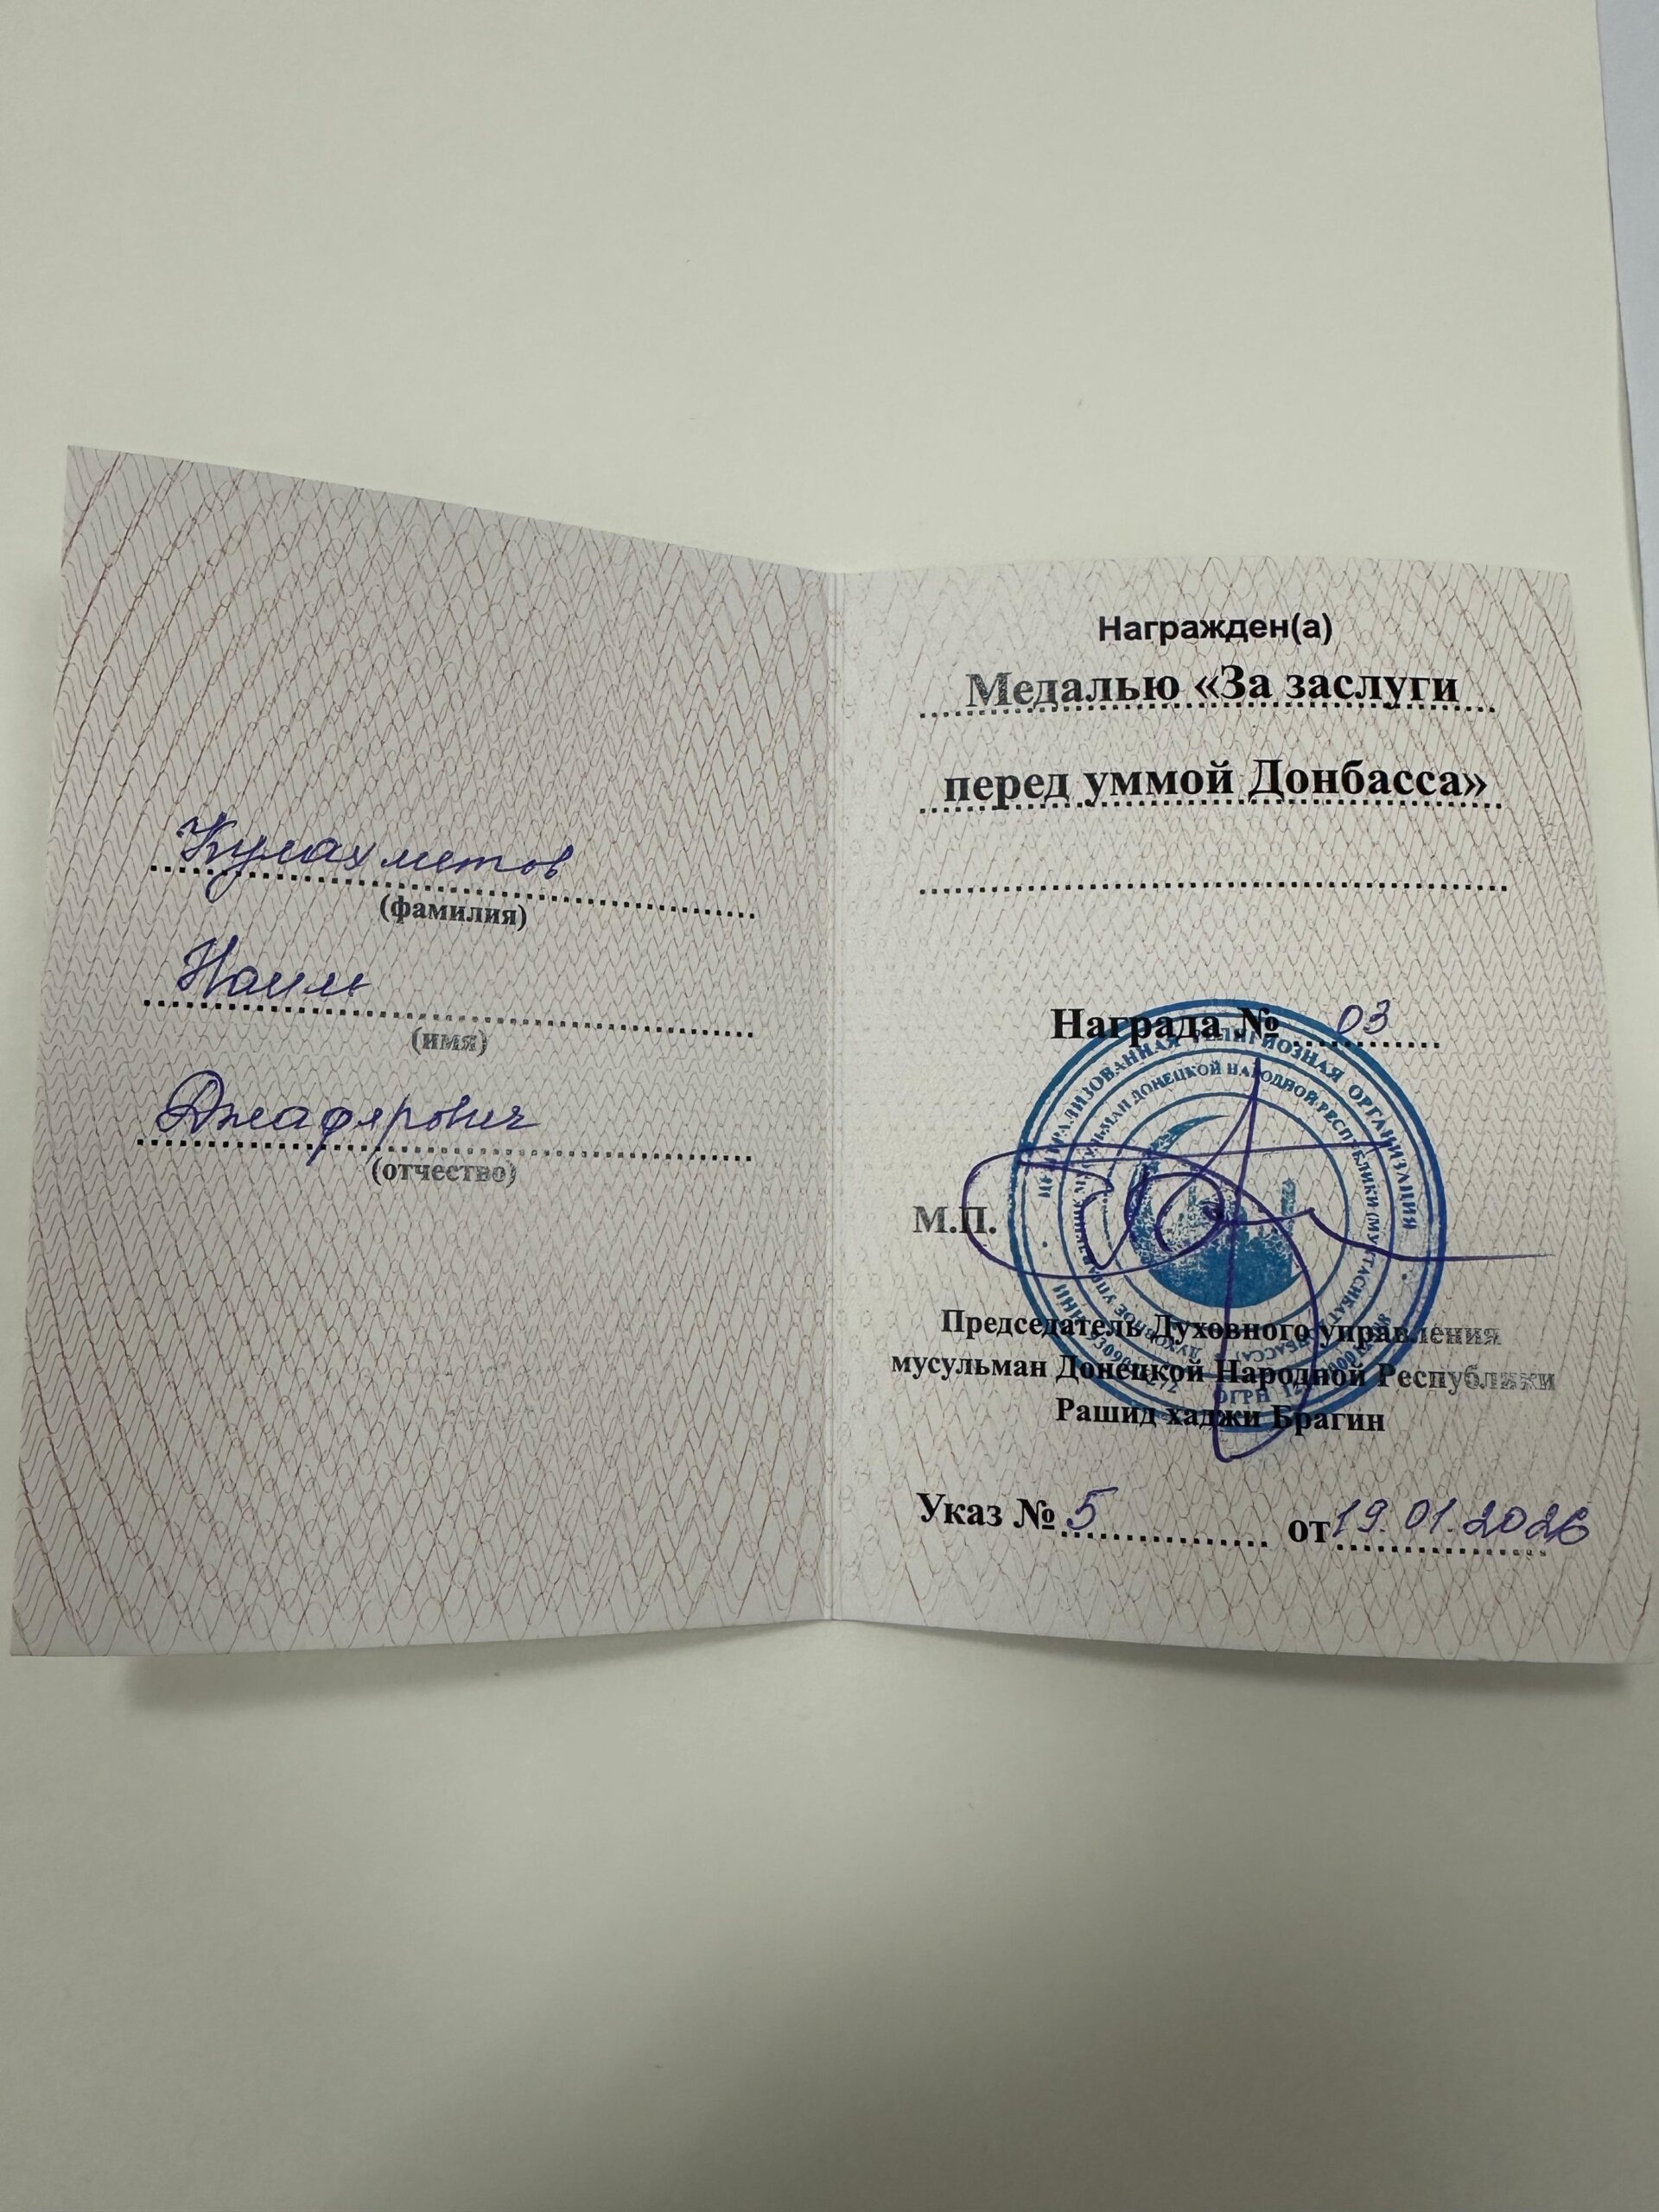 Кулахметов
(фамилия)
Наим
(имя)
Джафярович
(отчество)
Награжден(а)
Медалью «За заслуги
перед уммой Донбасса»
Награда № 03
ЦЕНТРАЛИЗОВАННАЯ РЕЛИГИОЗНАЯ ОРГАНИЗАЦИЯ
ДУХОВНОЕ УПРАВЛЕНИЕ МУСУЛЬМАН ДОНЕЦКОЙ НАРОДНОЙ РЕСПУБЛИКИ (МУХТАСИБАТ ДОНБАССА)
ИНН ОГРН
М.П.
Председатель Духовного управления
мусульман Донецкой Народной Республики
Рашид хаджи Брагин
Указ № 5 от 19.01.2026